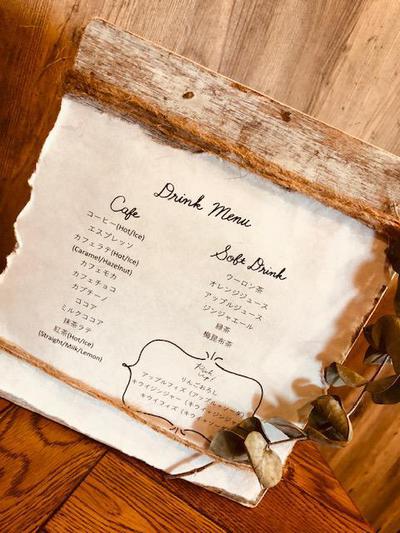 Drink Menu
Cafe
コーヒー(Hot/Ice)
エスプレッソ
カフェラテ(Hot/Ice)
(Caramel/Hazelnut)
カフェモカ
カフェチョコ
カプチーノ
ココア
ミルクココア
抹茶ラテ
紅茶(Hot/Ice)
(Straight/Milk/Lemon)
Soft Drink
ウーロン茶
オレンジジュース
アップルジュース
ジンジャエール
緑茶
梅昆布茶
Pick up!
りんごおろし
アップルフィズ (アップル+ソーダ)
キウイジンジャー (キウイ+ジンジャー
キウイフィズ (キウイ+ソーダ